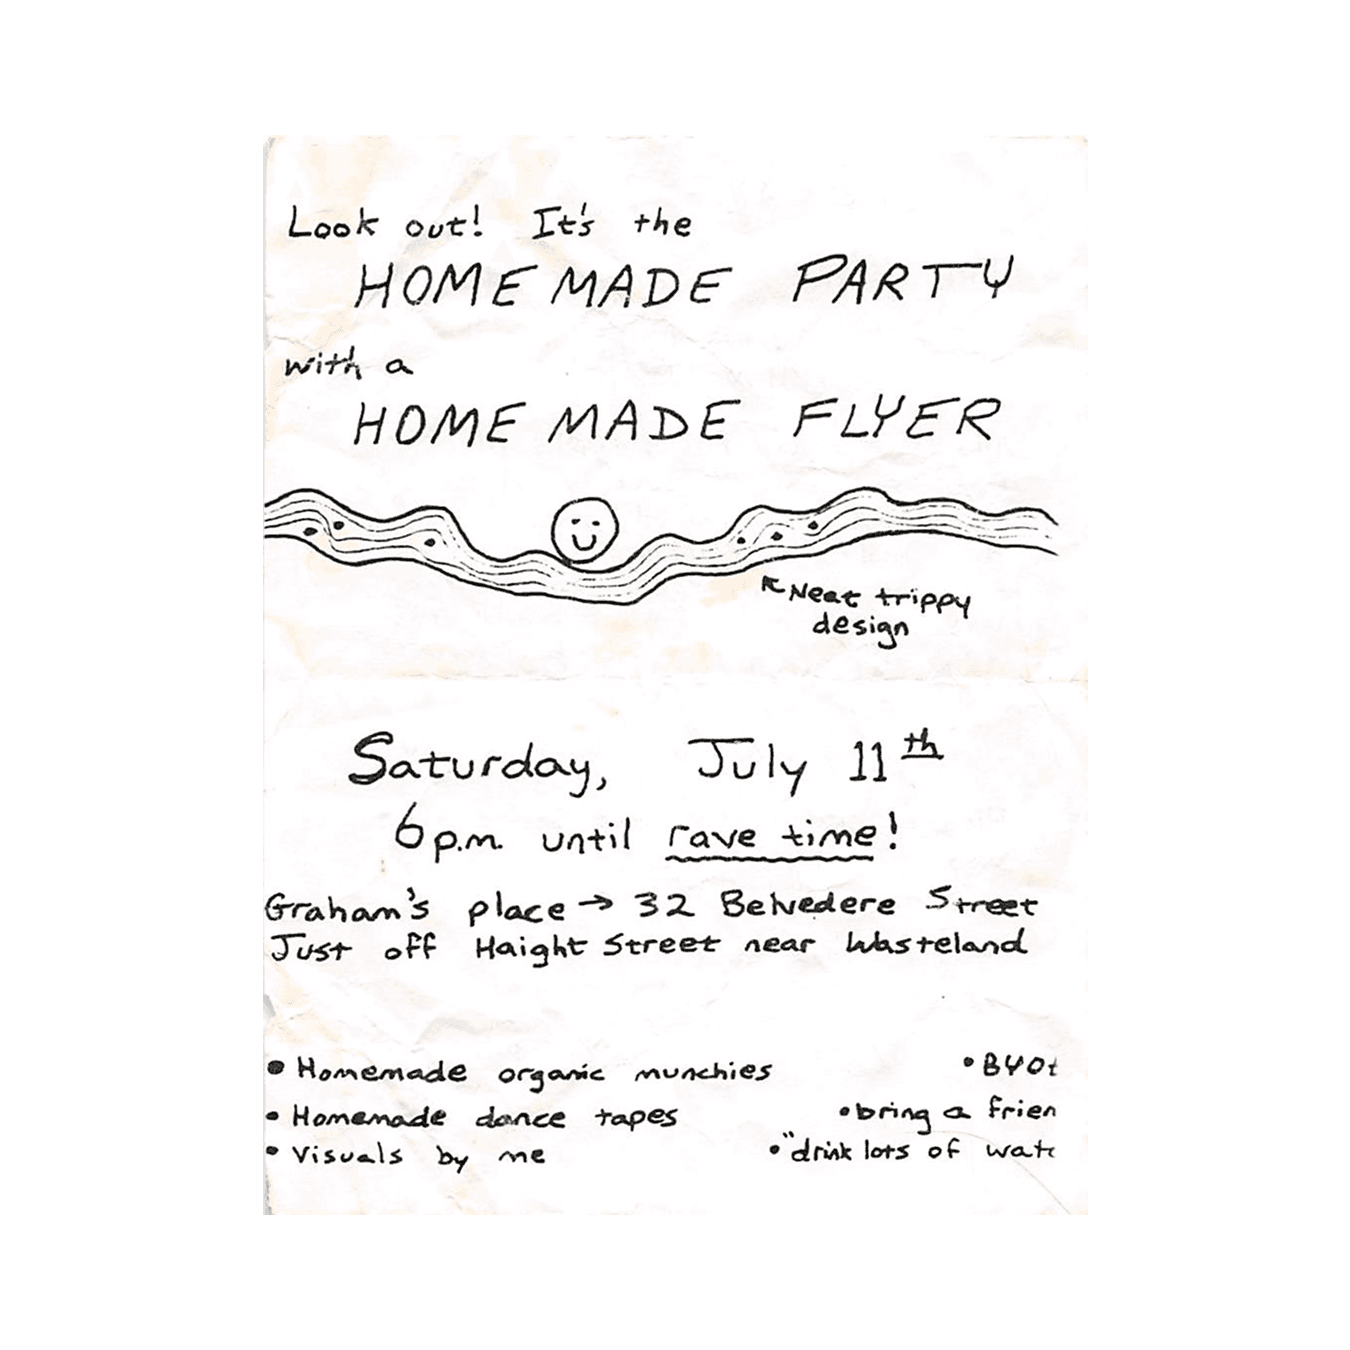 Look out! It's the
HOMEMADE PARTY
with a
HOMEMADE FLYER
Neat trippy
design
Saturday, July 11th
6p.m. until rave time!
Graham's place → 32 Belvedere Street
Just off Haight Street near Wasteland
• Homemade organic munchies
• BYO
• Homemade dance tapes
• bring a frien
• Visuals by me
• "drink lots of wat